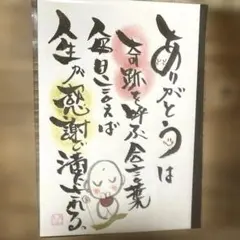 ありがとうは
奇跡を呼ぶ合言葉
毎日言えば
人生が感謝で満たされる。